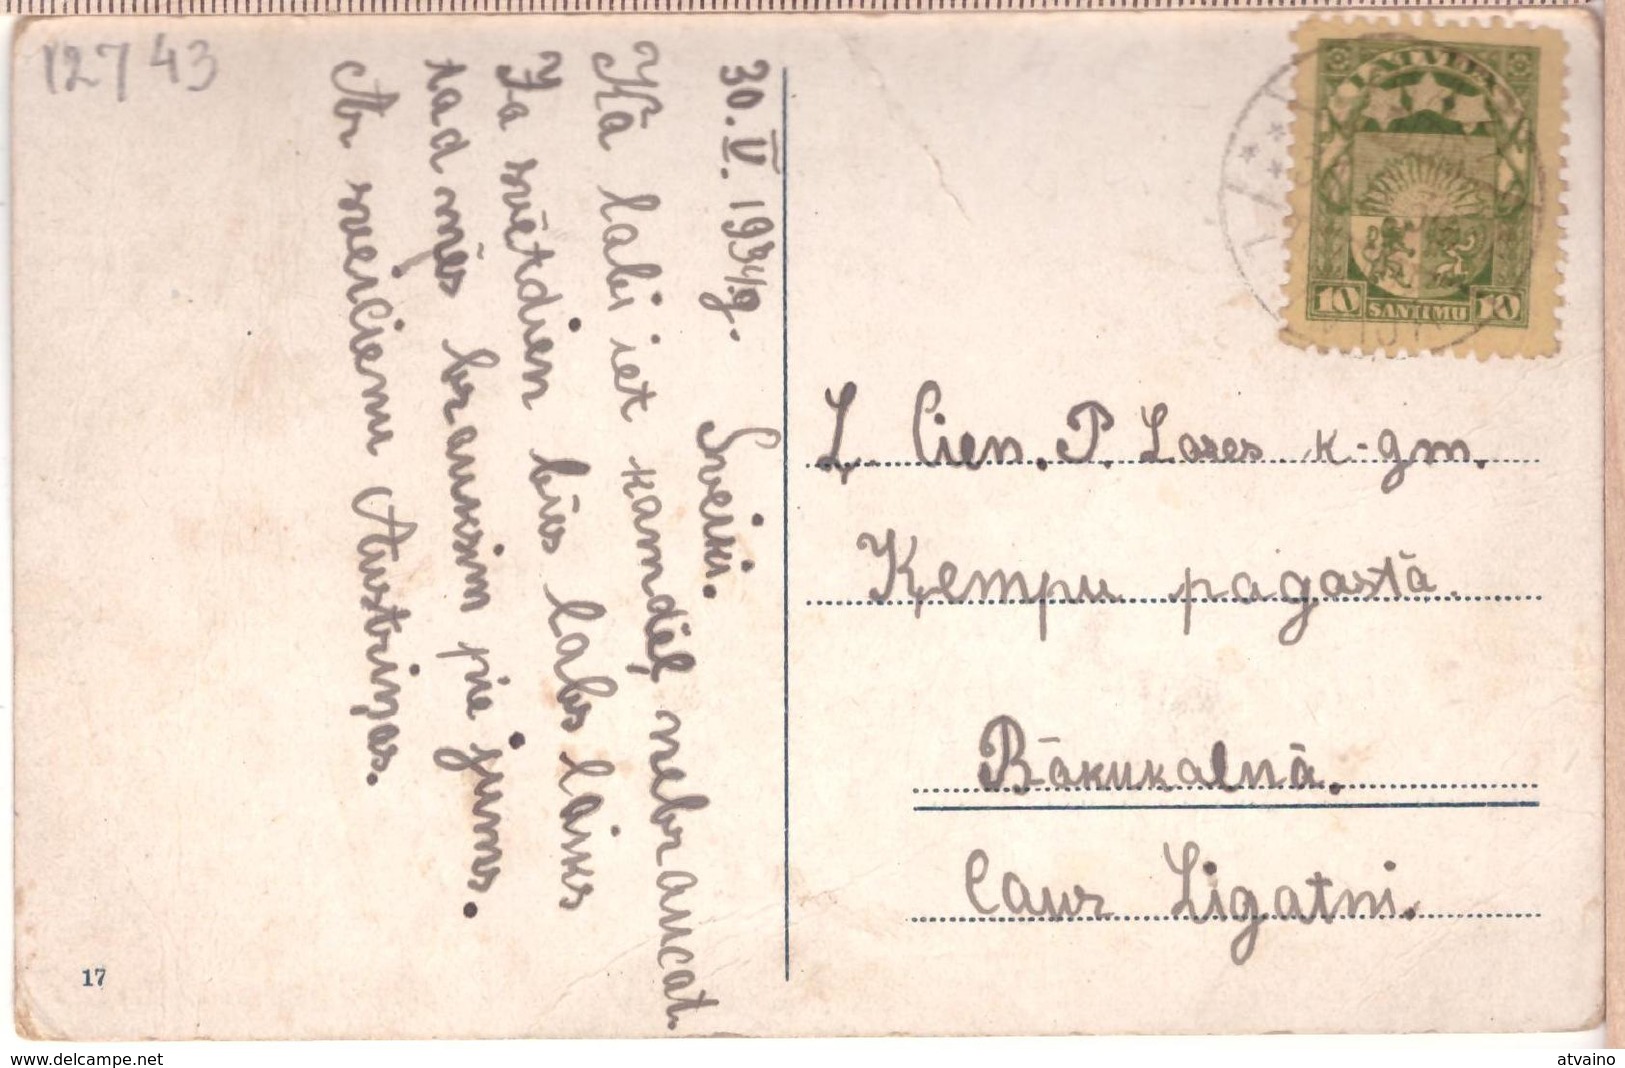 12743
30. V. 1934.g.
Sveiki.
Kā labi iet kamdēļ nebraucat.
Ja svētdien būs labs laiks
tad mēs brauksim pie jums.
Ar sveicienu Austriņas.
LATVIJA
10 SANTIMU 10
L. Cien. P. Lases k-gm.
Ķempu pagastā.
Bākukalnā.
Caur Līgatni.
17
www.delcampe.net
atvaino